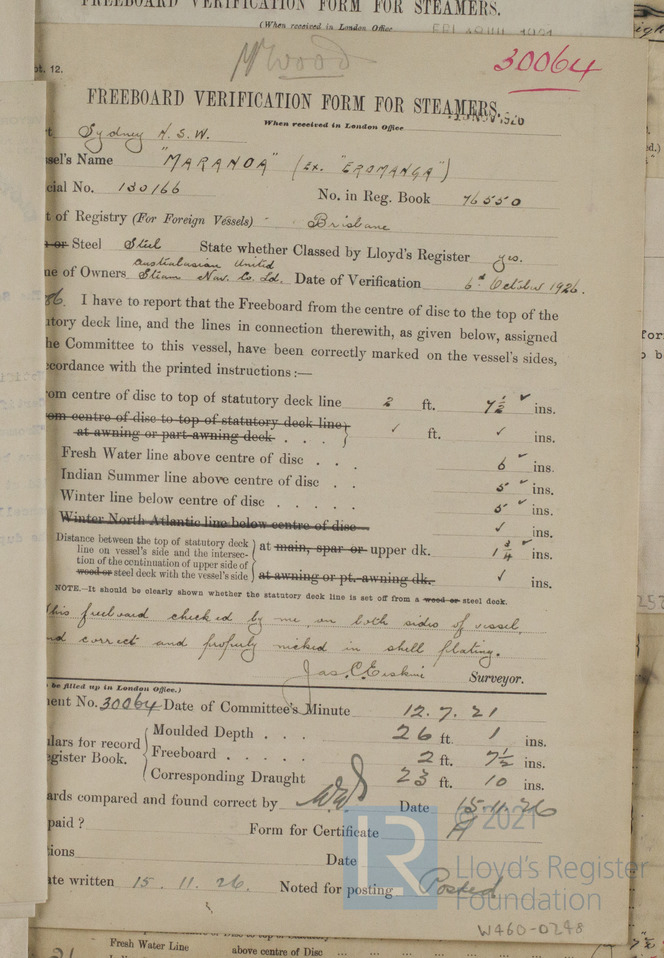 FREEBOARD VERIFICATION FORM FOR STEAMERS.
(When received in London Office
pt. 12.
Mr Wood
30064
FREEBOARD VERIFICATION FORM FOR STEAMERS.
When received in London Office
Sydney N.S.W.
sel's Name "MARANOA" (Ex. "EROMANGA")
cial No. 130166 No. in Reg. Book 76550
t of Registry (For Foreign Vessels) Brisbane
or Steel Steel State whether Classed by Lloyd's Register yes.
Australasian United
ne of Owners Steam Nav. Co. Ld. Date of Verification 6th October 1926.
I have to report that the Freeboard from the centre of disc to the top of the
utory deck line, and the lines in connection therewith, as given below, assigned
he Committee to this vessel, have been correctly marked on the vessel's sides,
ccordance with the printed instructions:—
om centre of disc to top of statutory deck line 2 ft. 7 1/2 ✓ ins.
om centre of disc to top of statutory deck line
at awning or part awning deck . . . ✓ ft. ✓ ins.
Fresh Water line above centre of disc . . . 6 ✓ ins.
Indian Summer line above centre of disc . . 5 ✓ ins.
Winter line below centre of disc . . . . . 5 ✓ ins.
Winter North Atlantic line below centre of disc ✓ ins.
Distance between the top of statutory deck
line on vessel's side and the intersec- at main, spar or upper dk. 1 3/4 ✓ ins.
tion of the continuation of upper side of
wood or steel deck with the vessel's side at awning or pt. awning dk. ✓ ins.
NOTE.—It should be clearly shown whether the statutory deck line is set off from a wood or steel deck.
This freeboard checked by me on both sides of vessel,
nd correct and properly nicked in shell plating.
Jas. C. Erskine Surveyor.
be filled up in London Office.)
ment No. 30064 Date of Committee's Minute 12.7.21
Moulded Depth . . . 26 ft. 1 ins.
lars for record
Freeboard . . . . . 2 ft. 7 1/2 ins.
egister Book.
Corresponding Draught 23 ft. 10 ins.
ards compared and found correct by Date 15.11.26
paid ? Form for Certificate A
tions Date
ate written 15.11.26. Noted for posting Posted
© 2021
LR
Lloyd's Register
Foundation
W460-0248
Fresh Water Line above centre of Disc